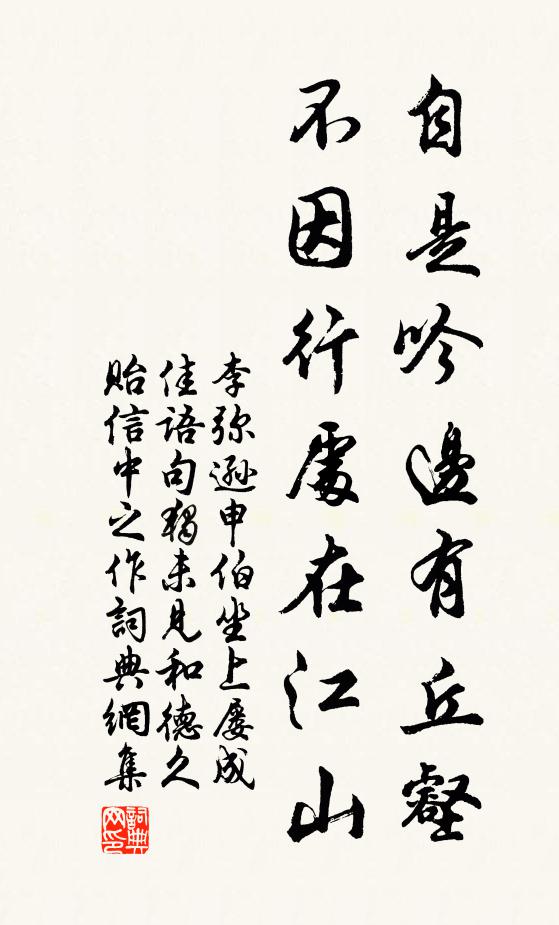 自是吟邊有丘壑
不因行處在江山
李弥遜申伯坐上屡成
佳語句獨未見和德久
貽信中之作詞典網集
詞典网印